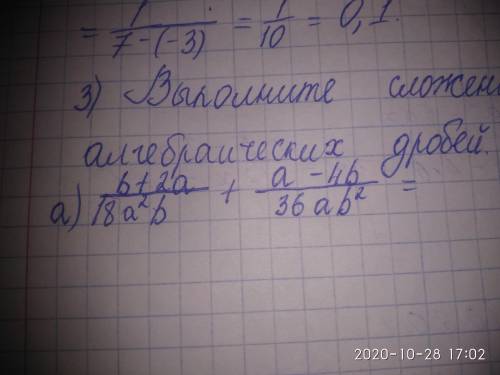 = 1/(7-(-3)) = 1/10 = 0,1.
3) Выполните сложен
алгебраических дробей.
а) (b+2a)/(18a²b) + (a-4b)/(36ab²) =
2020-10-28 17:02